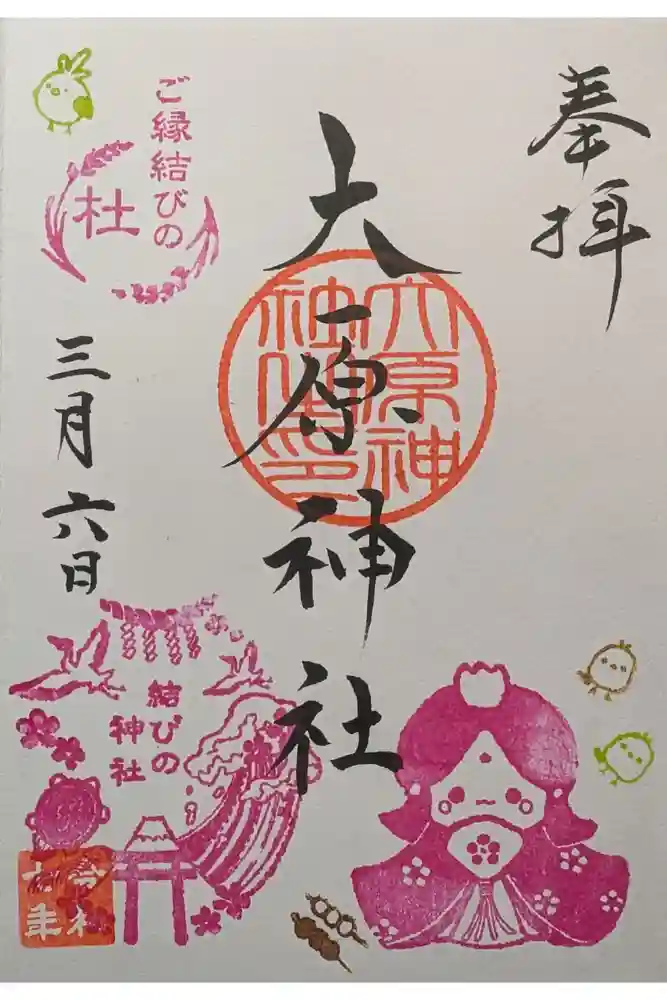 奉拝
大原神社
大原神
社印
ご縁結びの
杜
三月六日
結びの
神社
令和
七年